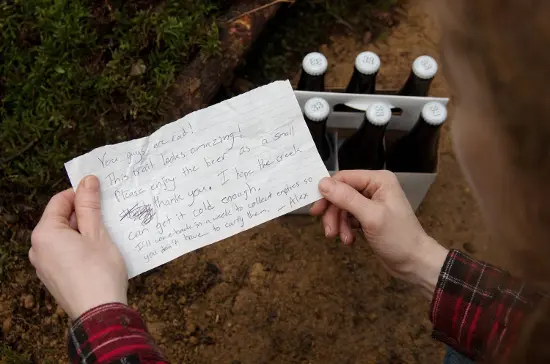 You guys are rad!
This trail looks amazing!
Please enjoy the beer as a small
thank you. I hope the creek
can get it cold enough.
I'll be back in a week to collect empties so
you don't have to carry them. – Alex